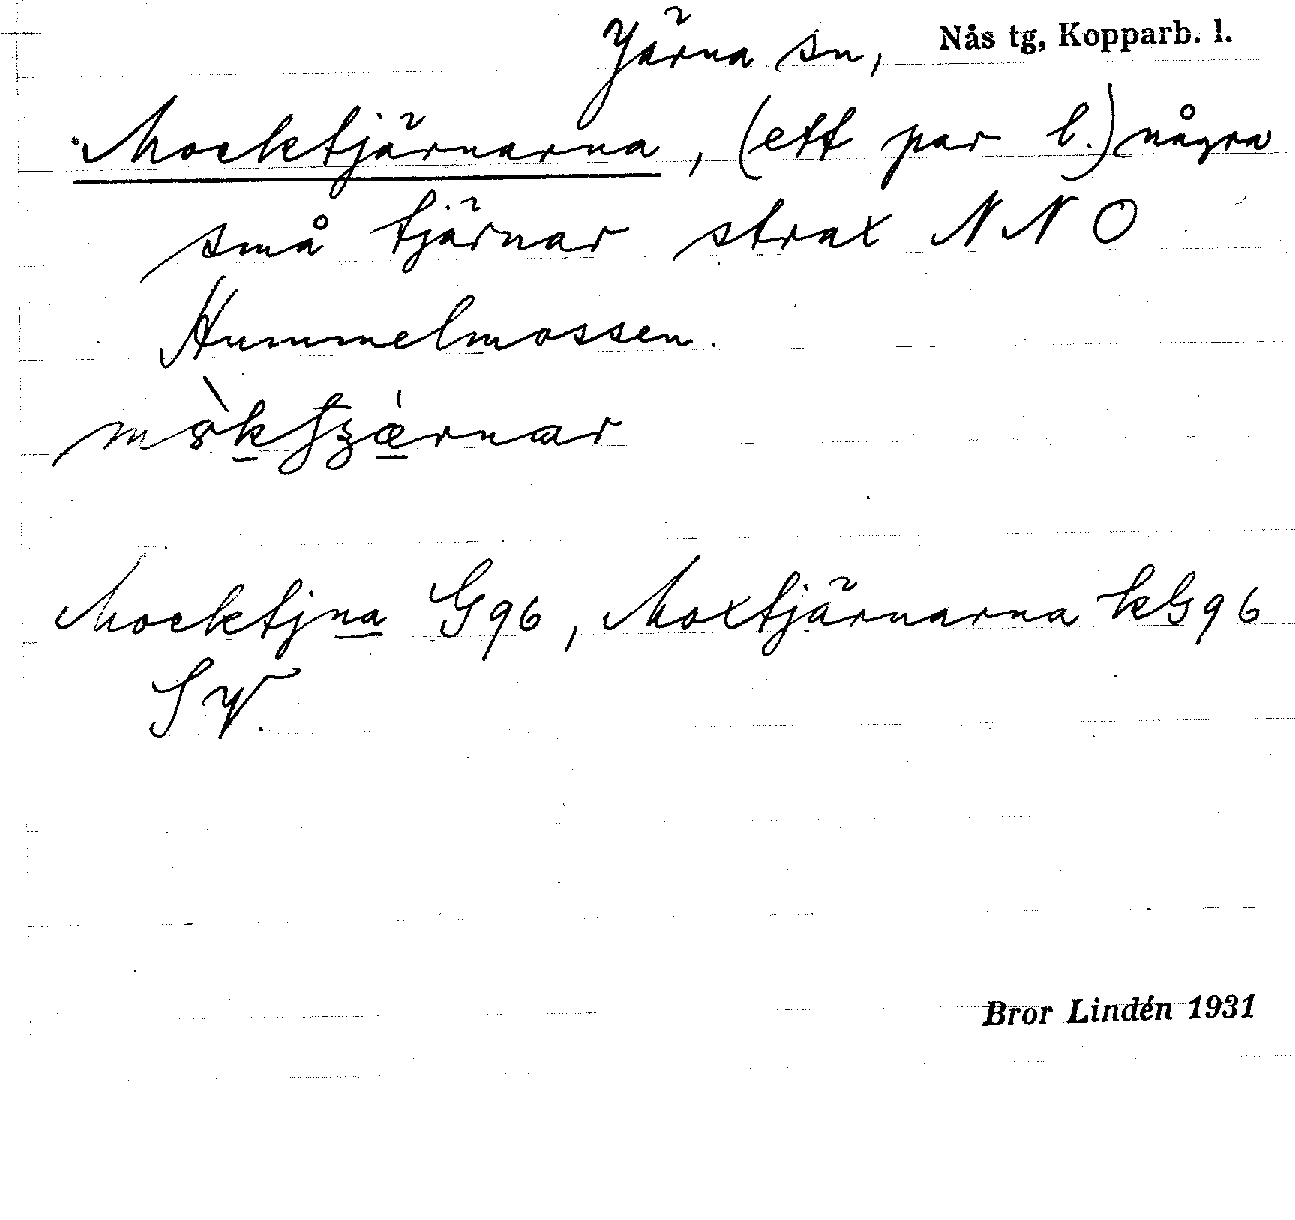 Järna sn, Nås tg, Kopparb. l.
Mocktjärnarna, (ett par l.) några
små tjärnar strax NNO
Hummelmossen.
Mocktjna G96, Moxtjärnarna kG96
SV.
Bror Lindén 1931